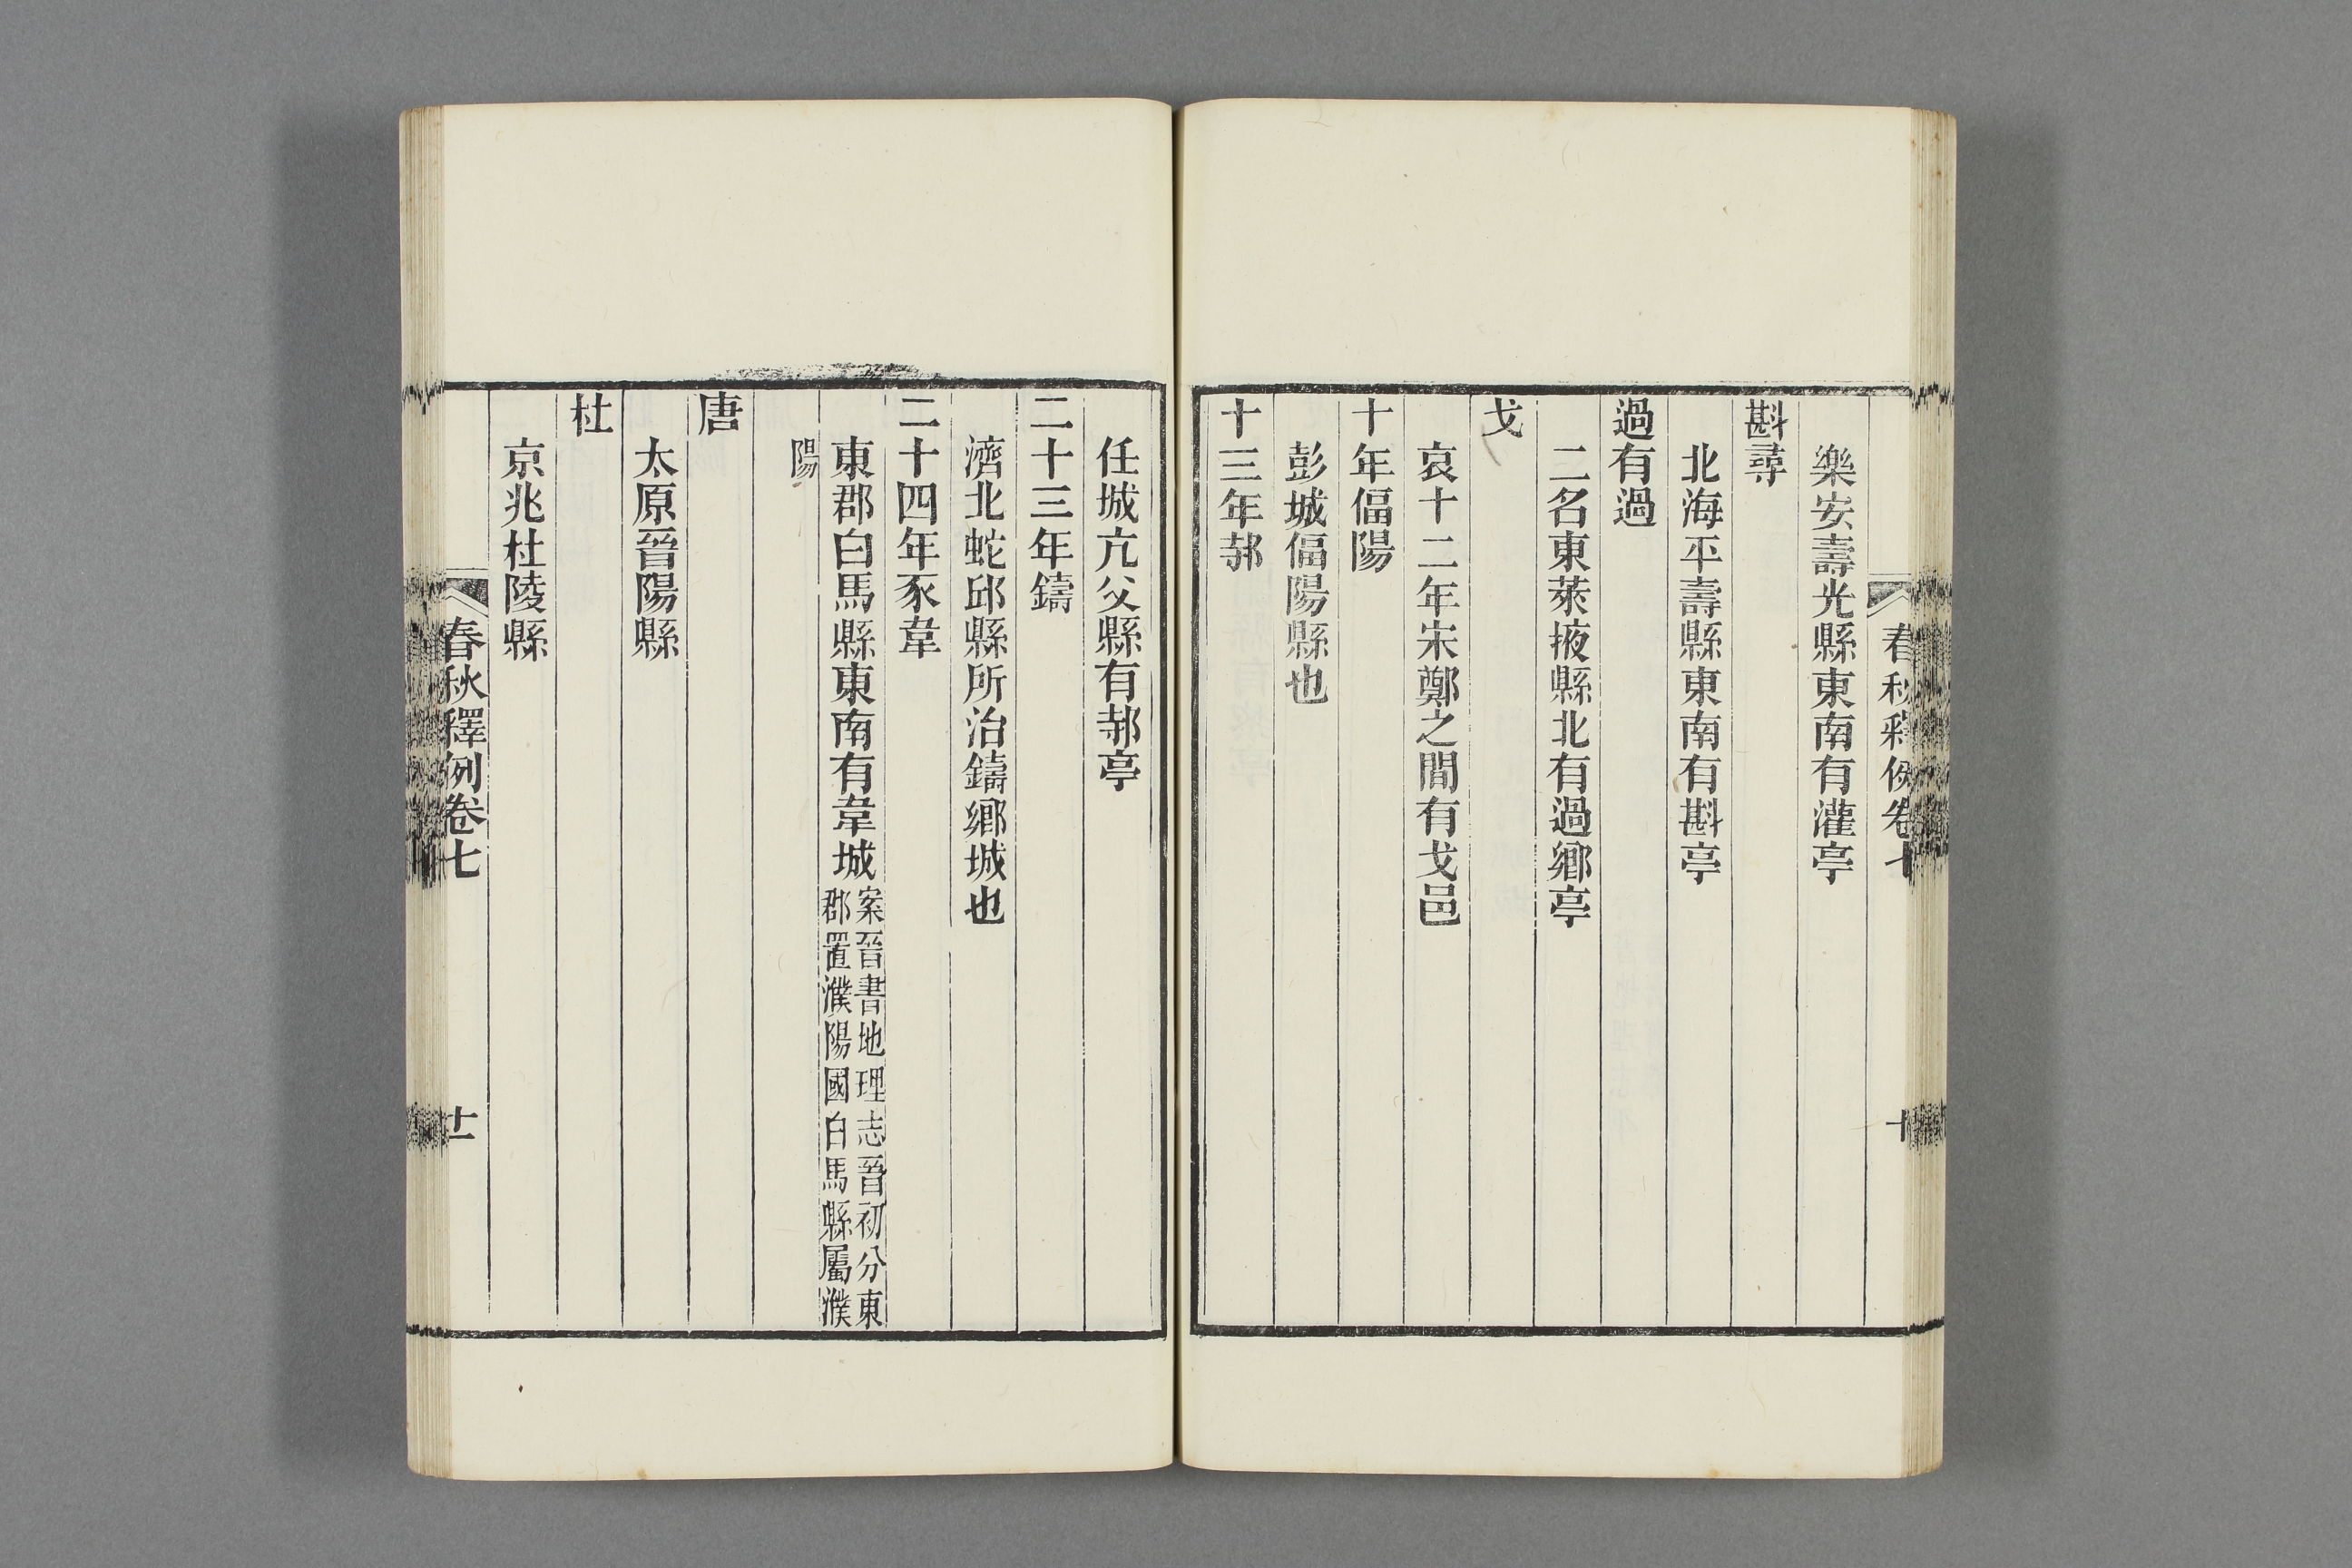 樂安壽光縣東南有灌亭
斟尋
北海平壽縣東南有斟亭
過有過
二名東萊掖縣北有過鄉亭
戈
哀十二年宋鄭之閒有戈邑
十年偪陽
彭城偪陽縣也
十三年邿
任城亢父縣有邿亭
二十三年鑄
濟北蛇邱縣所治鑄鄉城也
二十四年豕韋
東郡白馬縣東南有韋城案晉書地理志晉初分東
郡置濮陽國白馬縣屬濮
陽
唐
太原晉陽縣
杜
京兆杜陵縣
春秋釋例卷七
十一